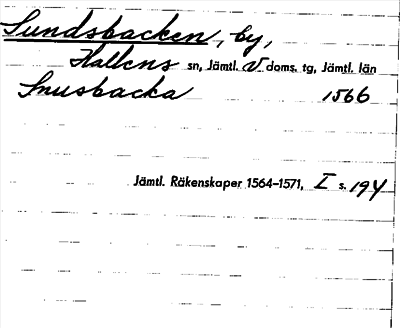 Sundsbacken, by,
Hallens sn, Jämtl. V doms. tg, Jämtl. län
Snusbacka 1566
Jämtl. Räkenskaper 1564-1571, I s. 194